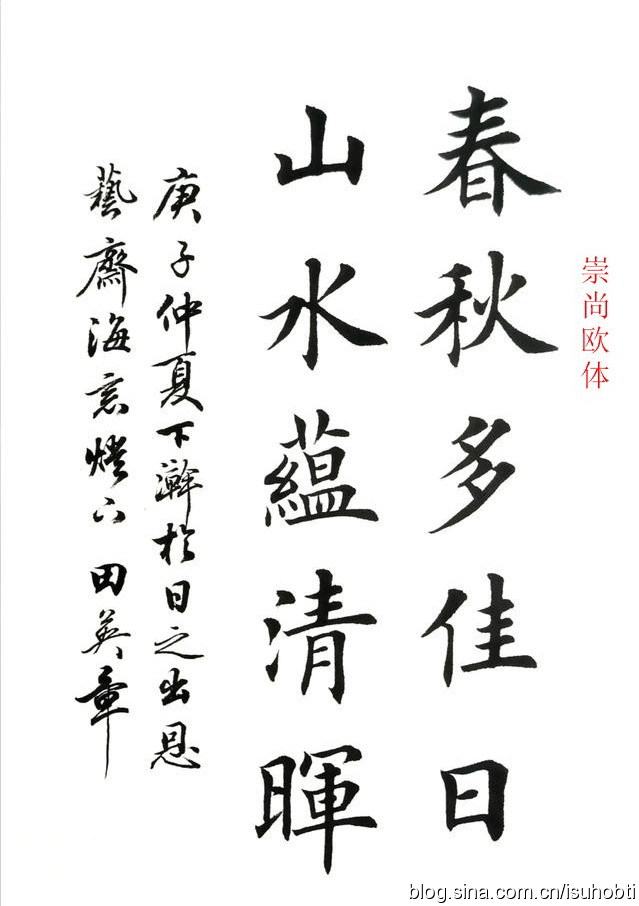 崇尚欧体
春秋多佳日
山水蘊清暉
庚子仲夏下澣於日之出恩
藝齋海燈下田英章
blog.sina.com.cn/isuhobti